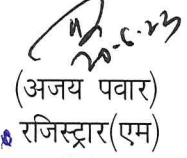 20-6-23
(अजय पवार)
रजिस्ट्रार(एम)